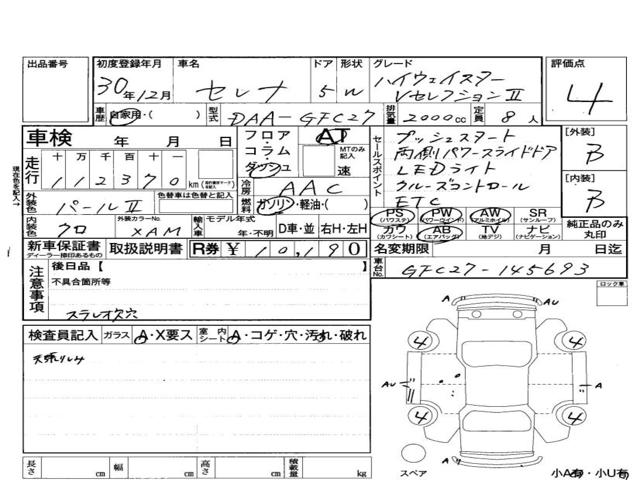 出品番号
初度登録年月
30年12月
車名
セレナ
ドア 形状
5 W
グレード
ハイウェイスター
Vセレクション II
評価点
4
車歴 自家用・( )
型式 DAA-GFC27
排気量 2000cc
定員 8人
車検 年 月 日
フロア・コラム・ダッシュ
AT
MTのみ記入
速
セールスポイント
プッシュスタート
両側パワースライドドア
LEDライト
クルーズコントロール
ETC
[外装]
B
[内装]
B
走行
十 万 千 百 十 一
112370 km
冷房 AAC
燃料 ガソリン・軽油・( )
外装色 パールII
色替車は色替と記入
内装色 クロ
外装カラーNo.
XAM
輸入車
モデル年式
年・不明
D車・並
右H・左H
PS (パワステ)
PW (パワーウインド)
AW (アルミホイル)
SR (サンルーフ)
カワ (カワシート)
AB (エアバッグ)
TV (地デジ)
ナビ (ナビゲーション)
純正品のみ丸印
現在色を記入→
新車保証書
ディーラー捺印あるもの
取扱説明書
R券 ¥10,190
名変期限 月 日迄
車台No. GFC27-145693
注意事項
後日品【 】
不具合箇所等
スラレオ欠穴
ロック車
検査員記入
ガラス A・X要ス
室内シート A・コゲ・穴・汚れ・破れ
A
AU
4
4
AU
A
4
4
A
スペア
小A有・小U有
長さ cm
幅 cm
高さ cm
積載量 kg